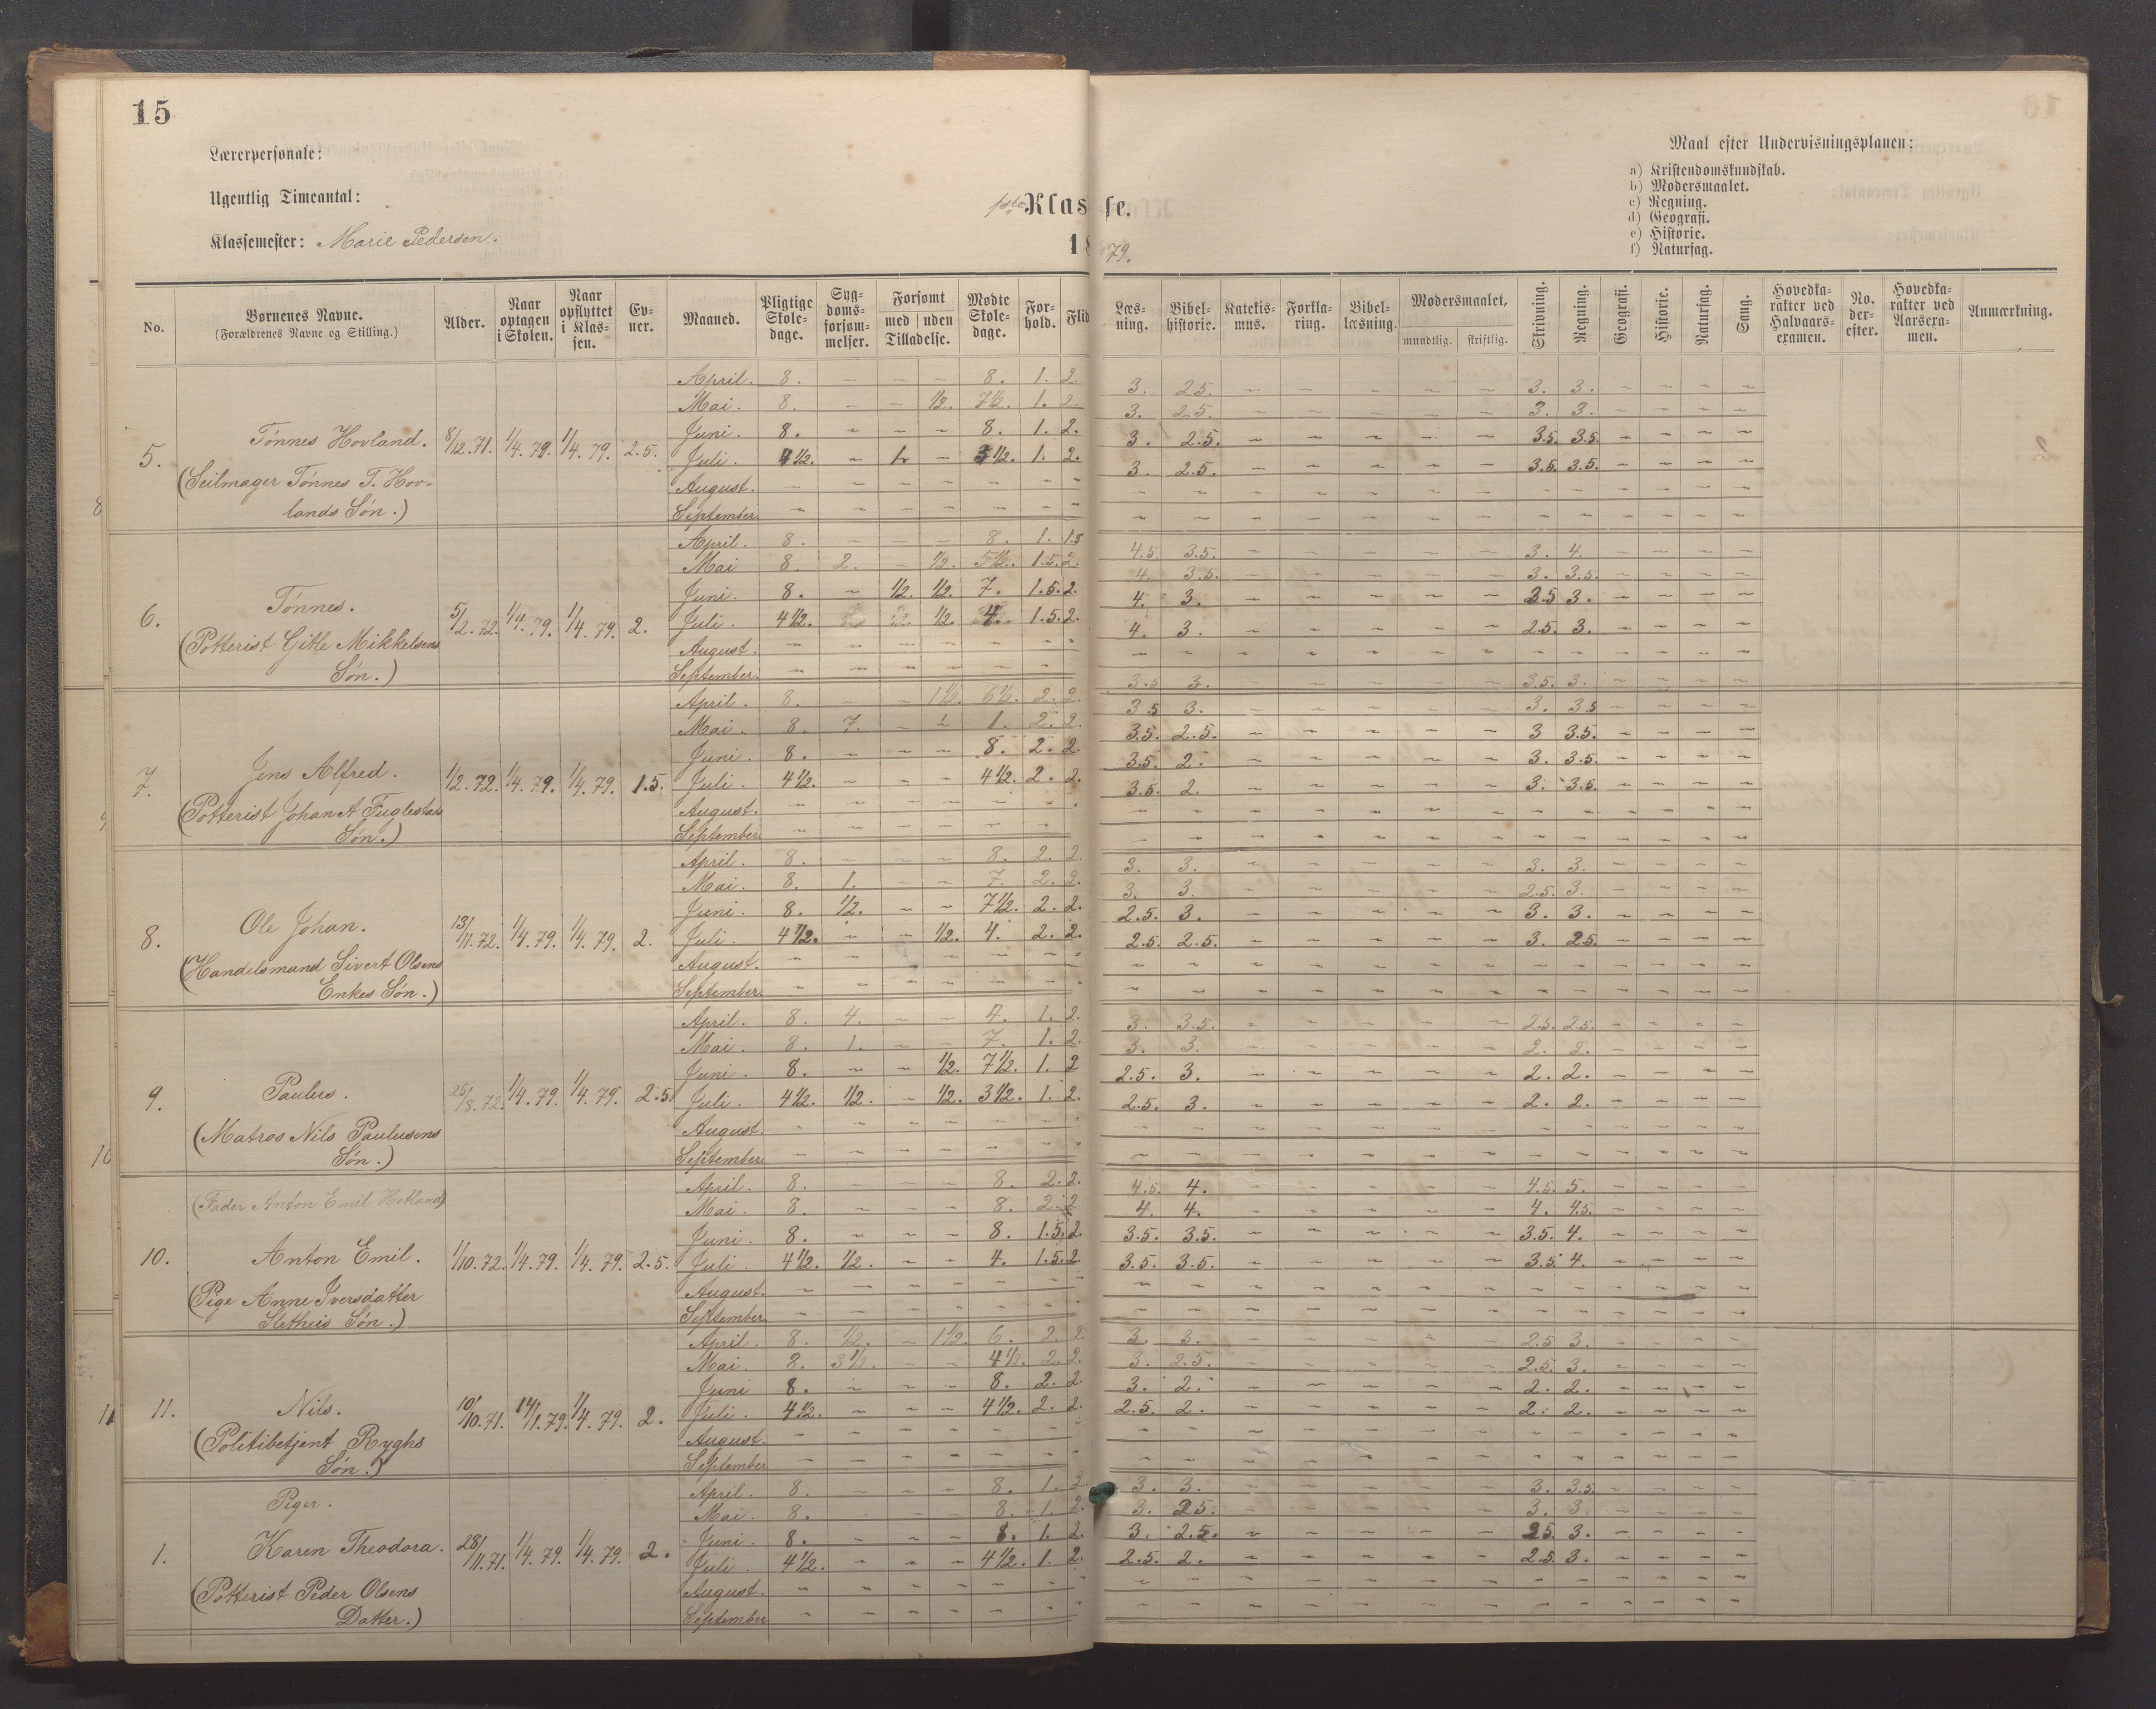 15
Lærerpersonale:
Ugentlig Timeantal:
Klassemester: Marie Pedersen.
1ste Klasse.
1879.
Maal efter Undervisningsplanen:
a) Kristendomskundskab.
b) Modersmaalet.
c) Regning.
d) Geografi.
e) Historie.
f) Naturfag.
No. | Børnenes Navne. (Forældrenes Navne og Stilling.) | Alder. | Naar optagen i Skolen. | Naar opflyttet i Klassen. | Evner. | Maaned. | Pligtige Skoledage. | Sygdomsforsømmelser. | Forsømt med | uden Tilladelse. | Mødte Skoledage. | Forhold. | Flid | Læsning. | Bibelhistorie. | Katekismus. | Forklaring. | Bibellæsning. | Modersmaalet, mundtlig. | skriftlig. | Skrivning. | Regning. | Geografi. | Historie. | Naturfag. | Sang. | Hovedkarakter ved Halvaarsexamen. | No. derefter. | Hovedkarakter ved Aarsexamen. | Anmærkning.
5. Tønnes Hovland. 8/12.71. 1/4.79. 1/4.79. 2.5.
(Seilmager Tønnes T. Hovlands Søn.)
April. 8. – – – 8. 1. 2. 3. 2.5. – – – – – 3. 3. – – – –
Mai. 8. – – 1/2. 7 1/2. 1. 2. 3. 2.5. – – – – – 3. 3. – – – –
Juni. 8. – – – 8. 1. 2. 3. 2.5. – – – – – 3.5. 3.5. – – – –
Juli. 4 1/2. – 1. – 3 1/2. 1. 2. 3. 2.5. – – – – – 3.5. 3.5. – – – –
August. – – – – – – –
September. – – – – – – –
6. Tønnes. 5/2.72. 1/4.79. 1/4.79. 2.
(Potterist Gitle Mikkelsens Søn.)
April. 8. – – – 8. 1. 1.5 4.5. 3.5. – – – – – 3. 4. – – – –
Mai 8. 2. – 1/2. 5 1/2. 1.5. 2. 4. 3.5. – – – – – 3. 3.5. – – – –
Juni. 8. – 1/2. 1/2. 7. 1.5. 2. 4. 3. – – – – – 2.5 3. – – – –
Juli. 4 1/2. 1/2. 4. 1.5. 2. 4. 3. – – – – – 2.5. 3. – – – –
August. – – – – – – –
September. – – – – – –
7. Jens Alfred. 1/2.72. 1/4.79. 1/4.79. 1.5.
(Potterist Johan A Fuglestads Søn.)
April. 8. – – 1 1/2. 6 1/2. 2. 2. 3.5 3. – – – – – 3.5. 3. – – – –
Mai. 8. 7. – 1. 2. 2. 3.5 3. – – – – – 3. 3.5 – – – –
Juni. 8. – – – 8. 2. 2. 3.5. 2.5. – – – – – 3 3.5. – – – –
Juli. 4 1/2. – – – 4 1/2. 2. 2. 3.5. 2. – – – – – 3. 3.5. – – – –
3.5. 2. – – – – – 3. 3.5. – – – –
August. – – – – – – –
September. – – – – – –
8. Ole Johan. 13/11.72. 1/4.79. 1/4.79. 2.
(Handelsmand Sivert Olsens Enkes Søn.)
April. 8. – – – 8. 2. 2. 3. 3. – – – – – 3. 3. – – – –
Mai. 8. 1. – – 7. 2. 2. 3. 3. – – – – – 2.5. 3. – – – –
Juni. 8. 1/2. – – 7 1/2. 2. 2. 2.5. 3. – – – – – 3. 3. – – – –
Juli. 4 1/2. – – 1/2. 4. 2. 2. 2.5. 2.5. – – – – – 3. 2.5. – – – –
August. – – – – – –
September. – – – – – – –
9. Paulus. 25/8.72. 1/4.79. 1/4.79. 2.5.
(Matros Nils Paulusens Søn.)
April. 8. 4. – – 4. 1. 2. 3. 3.5. – – – – – 2.5. 2.5. – – – –
Mai. 8. 1. – – 7. 1. 2. 3. 3. – – – – – 2. 2. – – – –
Juni. 8. – – 1/2. 7 1/2. 1. 2 2.5. 3. – – – – – 2. 2. – – – –
Juli. 4 1/2. 1/2. – 1/2. 3 1/2. 1. 2. 2.5. 3. – – – – – 2. 2. – – – –
August. – – – – – – –
September. – – – – – – –
(Fader Anton Emil Hetland)
10. Anton Emil. 1/10.72. 1/4.79. 1/4.79. 2.5.
(Pige Anne Iversdatter Sletheis Søn.)
April. 8. – – – 8. 2. 2. 4.5. 4. – – – – – 4.5. 5. – – – –
Mai. 8. – – – 8. 2. 2 4. 4. – – – – – 4. 4.5. – – – –
Juni. 8. – – – 8. 1.5. 2. 3.5. 3.5. – – – – – 3.5. 4. – – – –
Juli. 4 1/2. 1/2. – – 4. 1.5. 2. 3.5. 3.5. – – – – – 3.5. 4. – – – –
August. – – – – – – –
September. – – – – – – –
11. Nils. 10/10.71. 14/1.79. 1/4.79. 2.
(Politibetjent Ryghs Søn.)
April. 8. 1/2. – 1 1/2. 6. 2. 2. 3. 3. – – – – – 2.5 3. – – – –
Mai. 8. 3 1/2. – – 4 1/2. 2. 2. 3. 2.5. – – – – – 2.5. 3. – – – –
Juni 8. – – – 8. 2. 2. 3. 2. – – – – – 2. 2. – – – –
Juli. 4 1/2. – – – 4 1/2. 2. 2. 2.5. 2. – – – – – 2. 2. – – – –
August. – – – – – – –
September – – – – – – –
Piger.
1. Karen Theodora. 28/11.71. 1/4.79. 1/4.79. 2.
(Potterist Peder Olsens Datter.)
April. 8. – – – 8. 1. 2 3. 3. – – – – – 3. 3.5. – – – –
Mai. 8. – – – 8. 1. 2. 3. 2.5. – – – – – 3. 3 – – – –
Juni 8. – – – 8. 1. 2. 3. 2.5. – – – – – 2.5. 3. – – – –
Juli. 4 1/2. – – – 4 1/2. 1. 2. 2.5. 2. – – – – – 2.5. 3. – – – –
August. – – – – – – –
September – – – – – – –